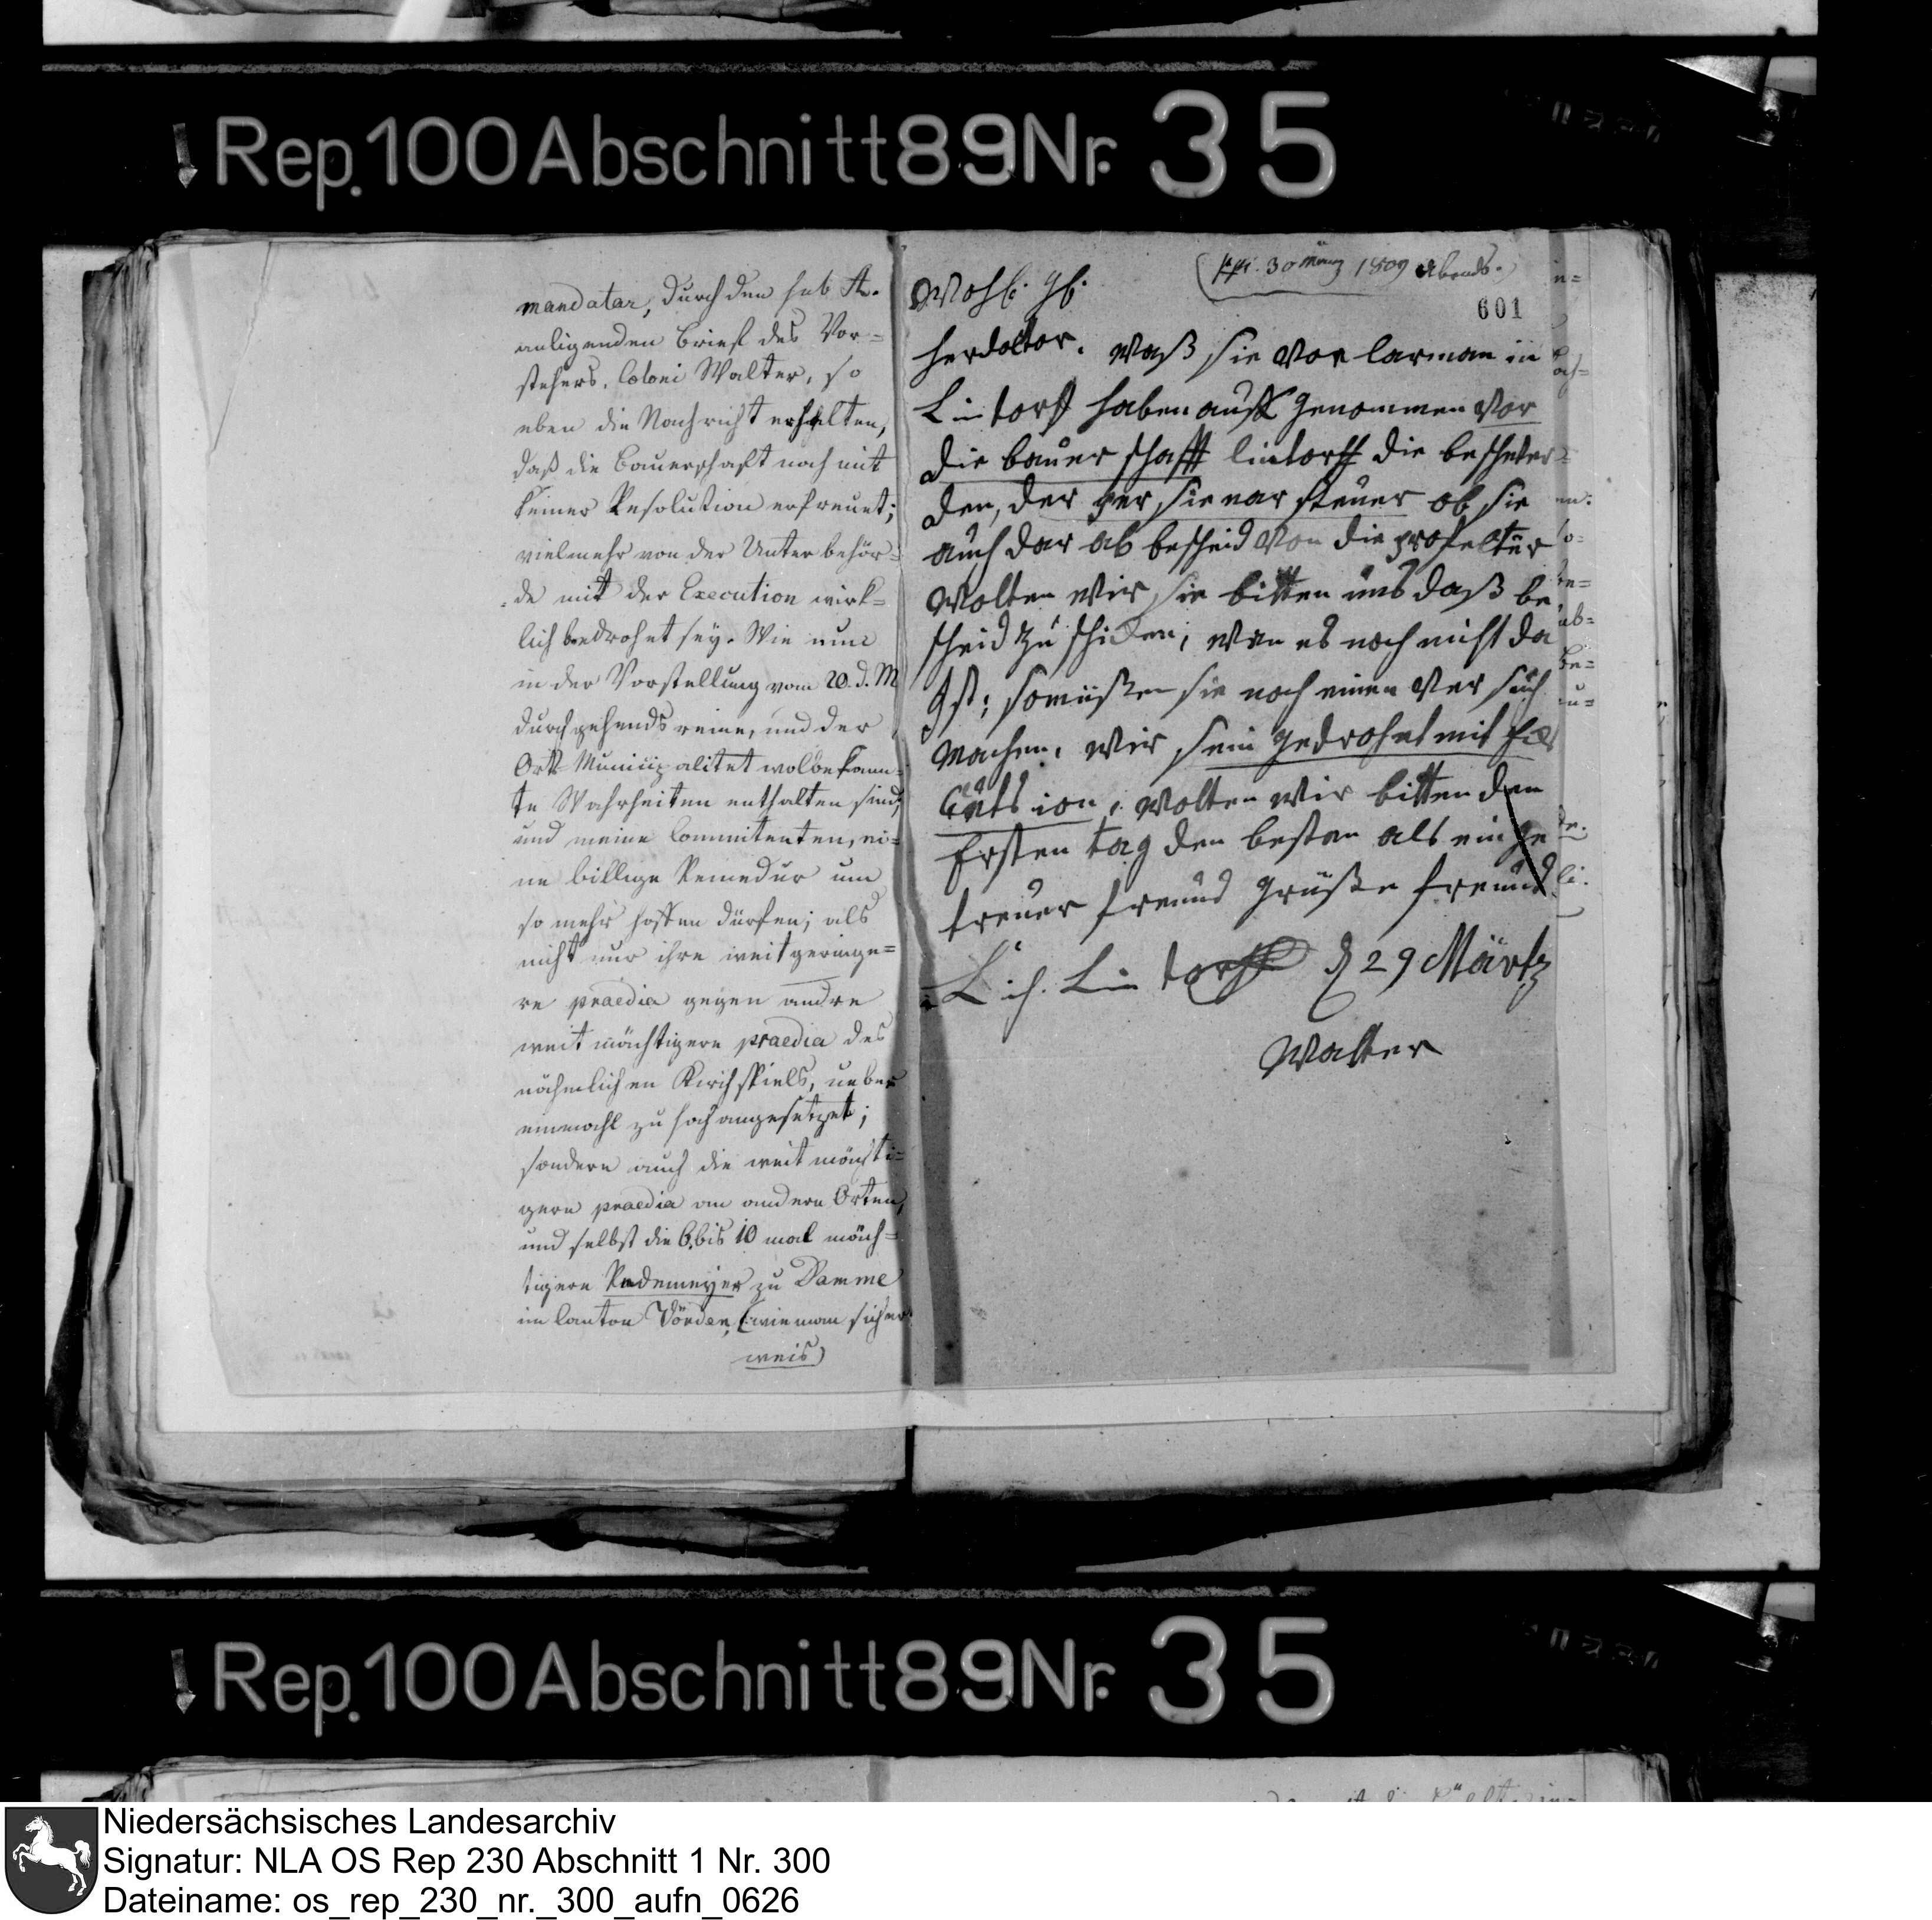 Rep. 100 Abschnitt 89 Nr. 35
mandatar, durch den sub A.
anligenden Brief des Vor=
stehers, Coloni Walter, so
eben die Nachricht erhalten,
daß die Bauerschaft noch mit
keiner Resolution erfreuet;
vielmehr von der Unterbehör=
de mit der Execution wirk=
lich bedrohet sey. Wie nun
in der Vorstellung vom 20. d. M
durchgehends reine, und der
Orts Municipalitet wolbekann=
te Wahrheiten enthalten sind,
und meine Committenten, ei=
ne billige Remedur um
so mehr hoffen dürfen; als
nicht nur ihre weit geringe=
re praedia gegen andre
weit mächtigere praedia des
nähmlichen Kirchspiels, ueber
einmahl zu hoch angesetzet;
sondern auch die weit mächti=
gern praedia an andern Orten,
und selbst die 6. bis 10 mal mäch=
tigere Rademeyer zu Damme
im Canton Vörden, (wie man sicher
weis)
(ppt. 30 März 1809 Abends.)
601
Wohl. gb.
herdoktor. waß sie vor larman in
Lintorf haben auff genommen vor
die bauer schafft lintorff die beschwer=
den, der per sie nar steuer ob sie
auch dar ab bescheid von die profektür
wolten wir sie bitten uns daß be
scheid zu schicken, wan es noch nicht da
Ist; so müßen sie noch einen ver such
machen. wir sein gedrohet mit
wolten wir bitten den
Ersten tag den besten als ein ge
treuer freund grüße freund
Lintorff d 29 Märtz
Walter
Rep. 100 Abschnitt 89 Nr. 35
Niedersächsisches Landesarchiv
Signatur: NLA OS Rep 230 Abschnitt 1 Nr. 300
Dateiname: os_rep_230_nr._300_aufn_0626